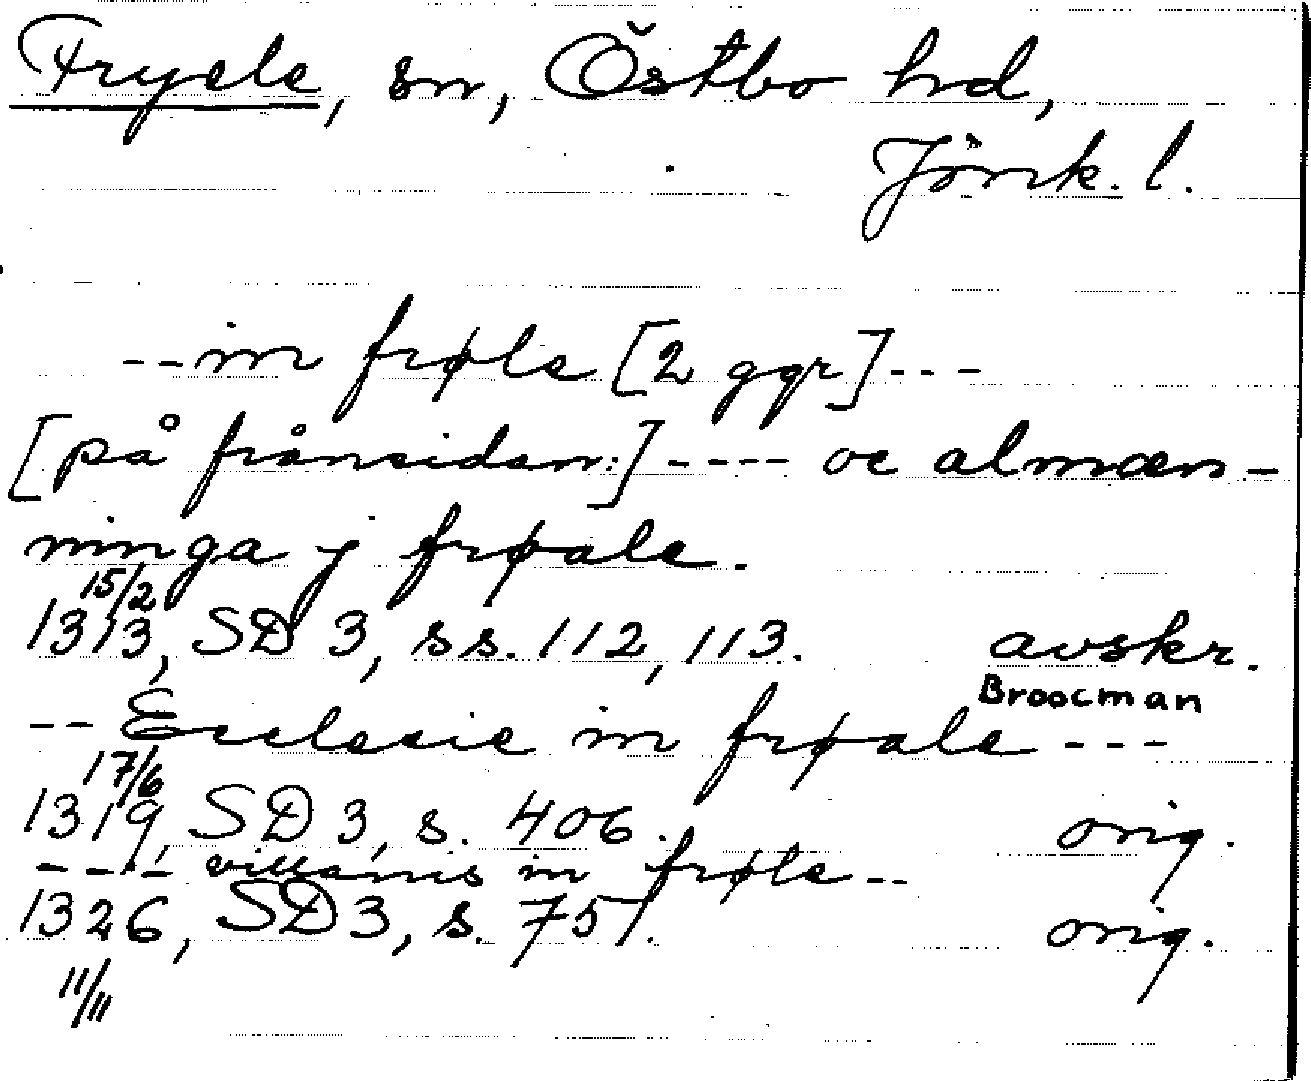 Fryele, sn, Östbo hd,
Jönk. l.
--in frøle [2 ggr]---
[på frånsidan:]---- oc almæn-
ninga j frøale.
15/2
1313, SD 3, ss. 112, 113. avskr.
Broocman
-- Ecclesie in frøale ---
17/6
1319, SD 3, s. 406. orig.
---- villanis in frøle --
1326, SD 3, s. 751. orig.
11/11